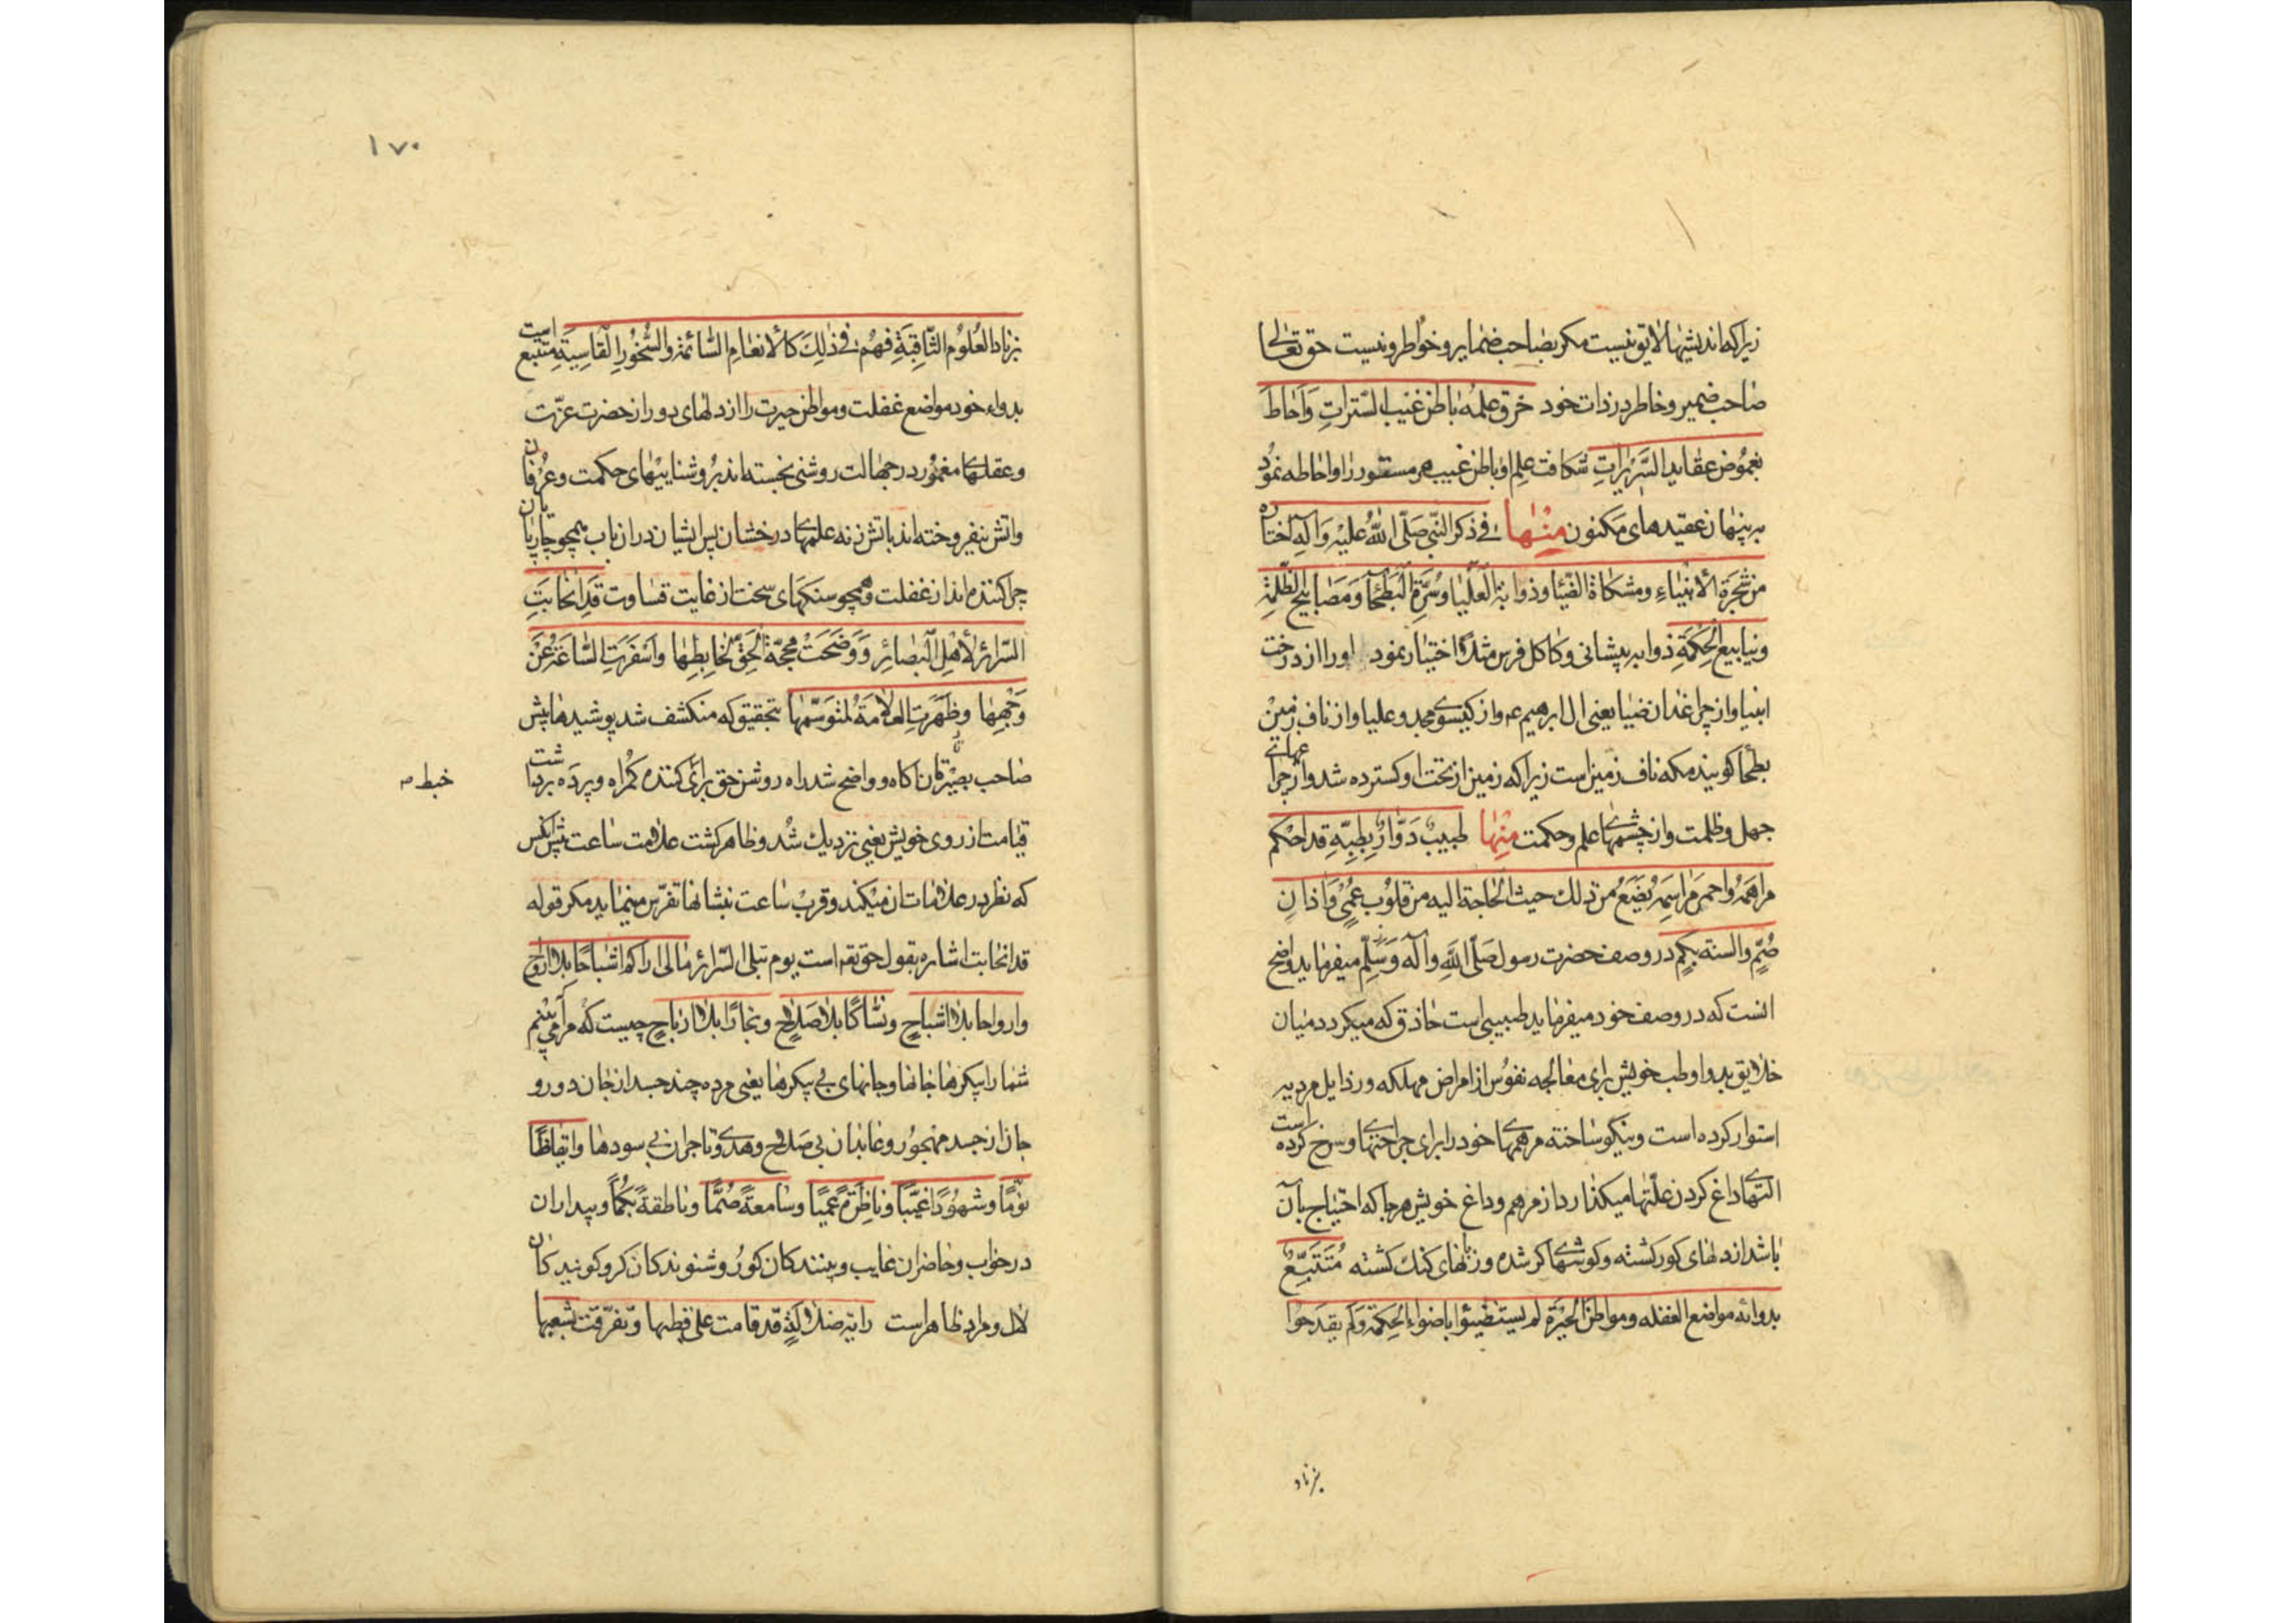 زیرا که اندیشیها لایق نیست مکر بصاحب ضمایر و خواطر و نیست حق تعالی
صاحب ضمیر و خاطر در ذات خود خرق علمه باطن غیب السترات وَاَحٰاطَ
بغموُض عقاید السَّریراتِ شکافت علم او باطن غیب هر مستور را و احاطه نمُود
بر پنهان عقیدهای مکنون مِنْهٰا فی ذکر النّبی صَلّی اللهُ عَلَیْهِ وَآلِهِ اختاره
من شجَرَةِ الأنبیٰاءِ ومشکاة الضّیٰا وذوابة العَلیٰا وسُرَّةِ البَطْحآ ومَصَابیح الظّلمَةِ
وینابیع الحِکْمَةِ ذوابه پیشانی و کاکل فرس مثلاً اختیار نمود او را از درخت
انبیا و از چراغدان ضیا یعنی ال ابرهیم ع و از کیسوی مجد و علیا و از ناف زمین
بطحا کویند مکه ناف زمین است زیرا که زمین از تحت او کسترده شد و از چراغهای
جهل و ظلمت و از چشمهای علم و حکمت مِنْهٰا طبیبٌ دَوّارٌ بِطِبِّهِ قد احْکم
مراهمَهُ واحمیٰ مَوٰاسِمَهُ یَضَعُ من ذلك حیث الحٰاجة الیه من قلوُب عُمْیٍ وَآذانٍ
صُمٍّ والسنة بکمٍ در وصف حضرت رسول صَلّی اللهِ وآله وَسَلّم میفرماید واضح
انست که در وصف خود میفرماید طبیبی است حاذق که میکردد میان
خلایق بدوا و طب خویش برای معالجه نفوُس از امراض مهلکه و رذایل مردیه
استوار کرده است و نیکو ساخته مرهمهای خود را برای جراحتها و سرخ کرده است
التهای داغ کردن علّتها میکذارد از مرهم و داغ خویش هرجا که احتیاج بآن
باشد از دلهای کور کشته و کوشهای کر شده و زبانهای کنك کشته مُتَتَبِّعٌ
بدوائه مواضع الغفله ومواطن الحَیْرَةِ لم یستضیئوا باضواءِ الحِکمَة وَلم یقدَحوُا
بزناد
۱۷۰
بزناد العُلوُم الثّاقِبَةِ فهُم فی ذٰلِكَ کالأنعٰامِ السّٰائمَة والصُّخُورِ القٰاسِیَةِ متتبع است
بدواء خود مواضع غفلت و مواطن حیرت را از دلهای دور از حضرت عزّت
و عقلهای مغموُر در جهالت روشنی نجسته اند برُوشناییهای حکمت و عرُفان
و اتش نیفروخته اند باتش زنه علمهای درخشان پس ایشان در ان باب همچو چارپایان
چرا کننده اند از غفلت و همچو سنکهای سخت از غایت قساوت قَدِ انْجٰابَتِ
السّرائرُ لأهْلِ البَصٰائِرِ وَوَضَحَتْ مَحَجَّةُ الحَقِّ لِخٰابِطِهٰا واَسْفَرَتِ السّٰاعَةُ عَنْ
وَجْهِهٰا وظَهَرَتِ العَلاٰمَةُ لمتوَسّمهٰا بتحقیق که منکشف شد پوشیدها پیش
صاحب بصیرتان اکاه و واضح شد راه روشن حق برای کننده کمراه و پرده برداشت
خبط
قیامت از روی خویش یعنی نزدیك شد و ظاهر کشت علامت ساعت پیش انکس
که نظر در علامات ان میکند و قرب ساعت بنشانها تفرّس مینماید مکر قوله
قد انجابت اشاره بقول حق تع است یوم تبلی السّرائر مٰالی اراکم اَشبٰاحًا بلا ارواحٍ
وارواحا بلا اشباحٍ ونسّاکًا بلا صَلاحٍ وتجّارًا بلا ارباحٍ چیست که مرا می بینم
شما را پیکرها جانها و جانهای بی پیکرها یعنی مرده چند جسد از جان دور و
جان از جسد مهجوُر و عابدان بی صَلاح و هدی و تاجران بی سودها وایقٰاظًا
نوّمًا وشهوُدًا غیّبًا وناظِرَةً عَمیٰآ وسٰامعَةً صُمّٰا وناطقةً بُکمٰا و بیداران
در خواب و حاضران غایب و بینندکان کوُر و شنوندکان کر و کویندکان
لال و مراد ظاهر است رایة ضلالَةٍ قد قامت علیٰ قطبها وتفرّقت بشعبها